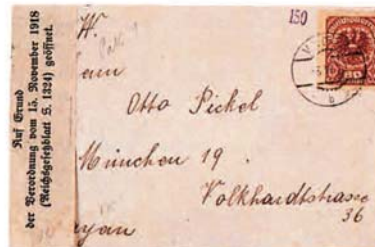 Auf Grund
der Verordnung vom 15. November 1918
(Reichsgesetzblatt S. 1324) geöffnet.
150
W.
Otto Pickel
München 19
Volkhardtstrasse
36
80
b